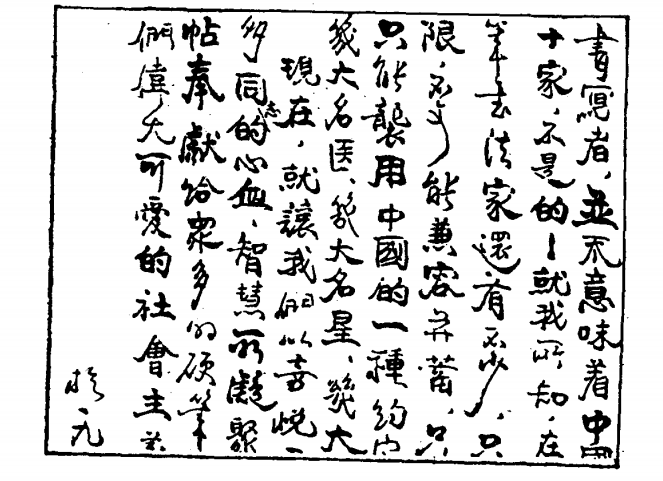 書寫者，並不意味着中國
十家，不是的！就我所知，在
筆書法家還有不少，只
限，不可能兼容并蓄，只
只能襲用中國的一種約定
幾大名医、幾大名星、幾大
現在，就讓我們以喜悅
多同志的心血、智慧所凝聚
帖奉獻給眾多的硬筆
們偉大可愛的社會主義